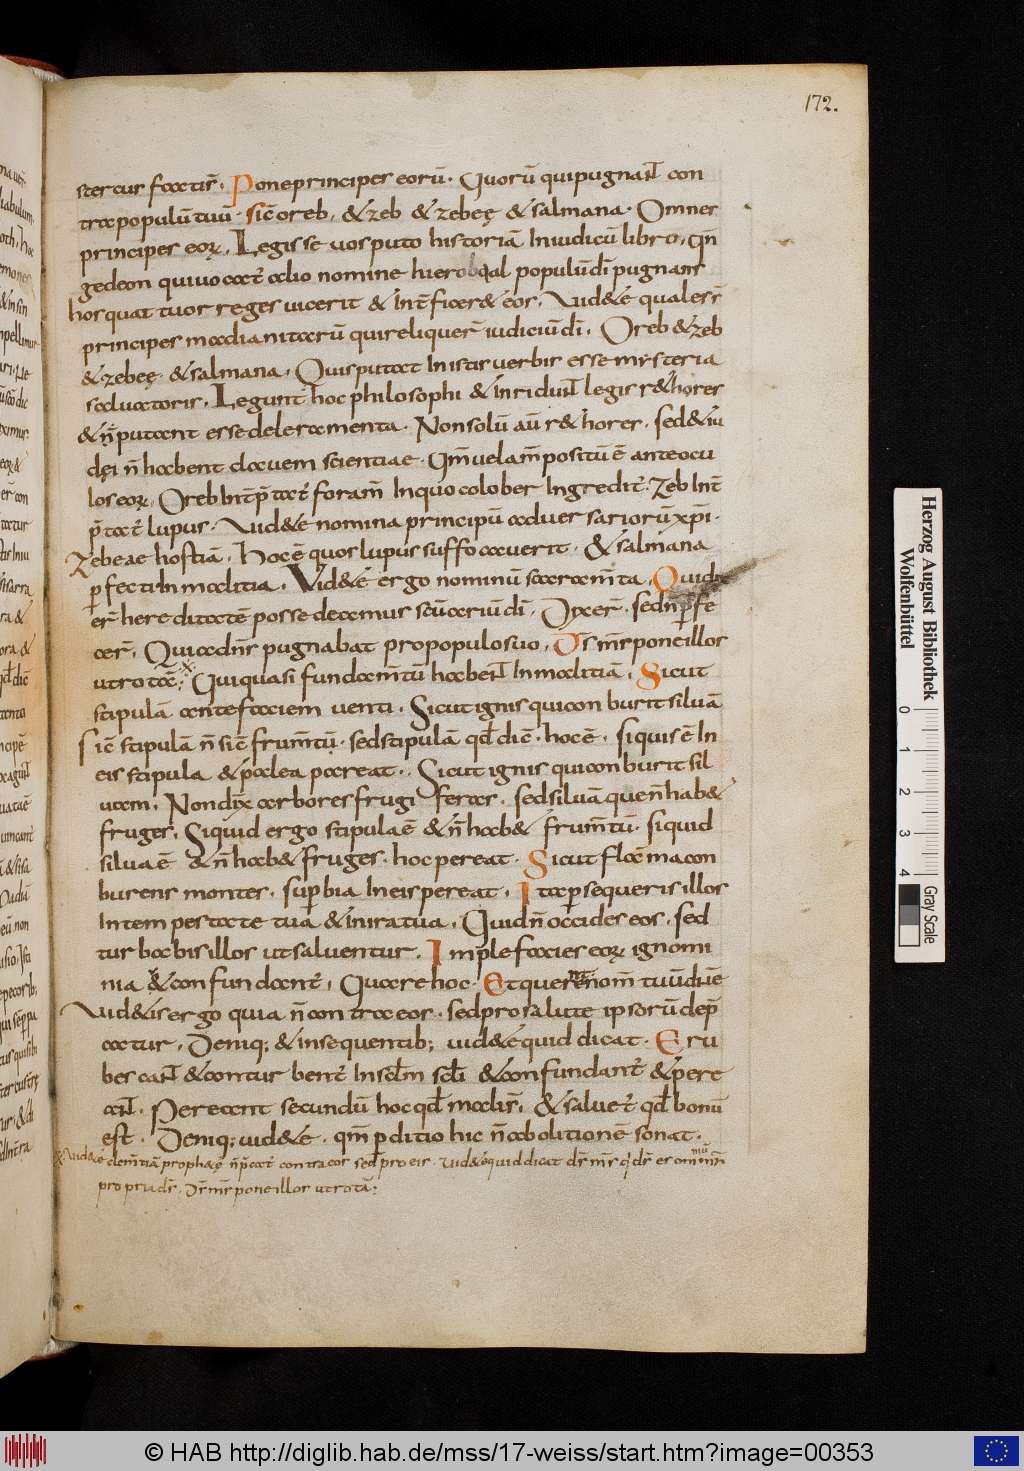 172.
stercus facti sr̄. Pone principes eorū. Quorū qui pugnant con
tra populū tuū. sic̄ oreb, & zeb & zebeę & salmana. Omnes
principes eoꝝ. Legisse uos puto historiā In iudicū libro, qn̄
gedeon qui uocat̄ alio nomine hierobaal populū dī pugnans
hos quattuor reges uicerit & int̄ficer& eos. Uid&e quales sr̄
principes madianitarū qui reliquer̄ iudiciū dī. Oreb & zeb
& zebeę. & salmana. Quis putat In istis uerbis esse mysteria
saluatoris. Legunt hoc philosophi & inridunt legis r&hores
& n̄ putant esse deleramenta. Non solū aū r&hores. sed & iu
dęi n̄ habent clauem scientiae. Qm̄ uelam̄ positū ē ante ocu
los eoꝝ. Oreb Int̄p̄tat̄ foram̄ In quo coluber Ingredit̄. Zeb Int̄
p̄tat̄ lupus. Uid&e nomina principū aduersariorū xp̄i.
Zebeae hostiā. Hoc ē quos lupus suffocauerit. & salmana
ꝑfecti In malitia. Vid&e ergo nominū sacram̄ta. Quidix
er̄ hereditatē posse deamus scūariū dī. Dixer̄. sed n̄ ꝑfe
cer̄. Quia dn̄s pugnabat pro populo suo. Ds̄ ms̄ pone illos
ut rotā. Qui quasi fundam̄tū habent In malitiā. Sicut
stipulā ante faciem uenti. Sicut ignis qui conburit siluā
sic̄ stipulā n̄ sic̄ frum̄tū. sed stipulā qd̄ dic̄. hoc ē. si quis ē In
eis stipula & palea pareat. Sicut ignis qui conburit sil
uam. Non dix̄ arbores frugiferas. sed siluā que n̄ hab&
fruges. Siquid ergo stipulae ē & n̄ hab& frum̄tū. siquid
siluae ē & n̄ hab& fruges. hoc pereat. Sicut flam̄ma con
burens montes. suꝑbia In eis pereat. Ita ꝑsequeris illos
In tempestate tua & in ira tua. Quid n̄ occides eos. sed
turbabis illos ut saluentur. Imple facies eoꝝ ignomi
nia & confundant̄. Quare hoc. Et querent nom̄ tuū dn̄e
Uid&is ergo quia n̄ contra eos. sed pro salute ipsorū dep̄
catur. Deniq; & in sequentib; uid&e quid dicat. Eru
bescant & conturbent̄ In sclm̄ sclī & confundant̄ & pere
ant. Pereant secundū hoc qd̄ mali sr̄. & saluet̄ qd̄ bonū
est. Deniq; uid&e. qm̄ ꝑditio hic n̄ abolitionē sonat.
& Uid&e clem̄tiā prophaę n̄ p̄cat̄ contra eos sed pro eis. Uid&e quid dicat ds̄ ms̄ qi ds̄ es omniū
propria ds̄. Ds̄ ms̄ pone illos ut rotā.
Herzog August Bibliothek
Wolfenbüttel
0 1 2 3 4
Gray Scale
© HAB http://diglib.hab.de/mss/17-weiss/start.htm?image=00353